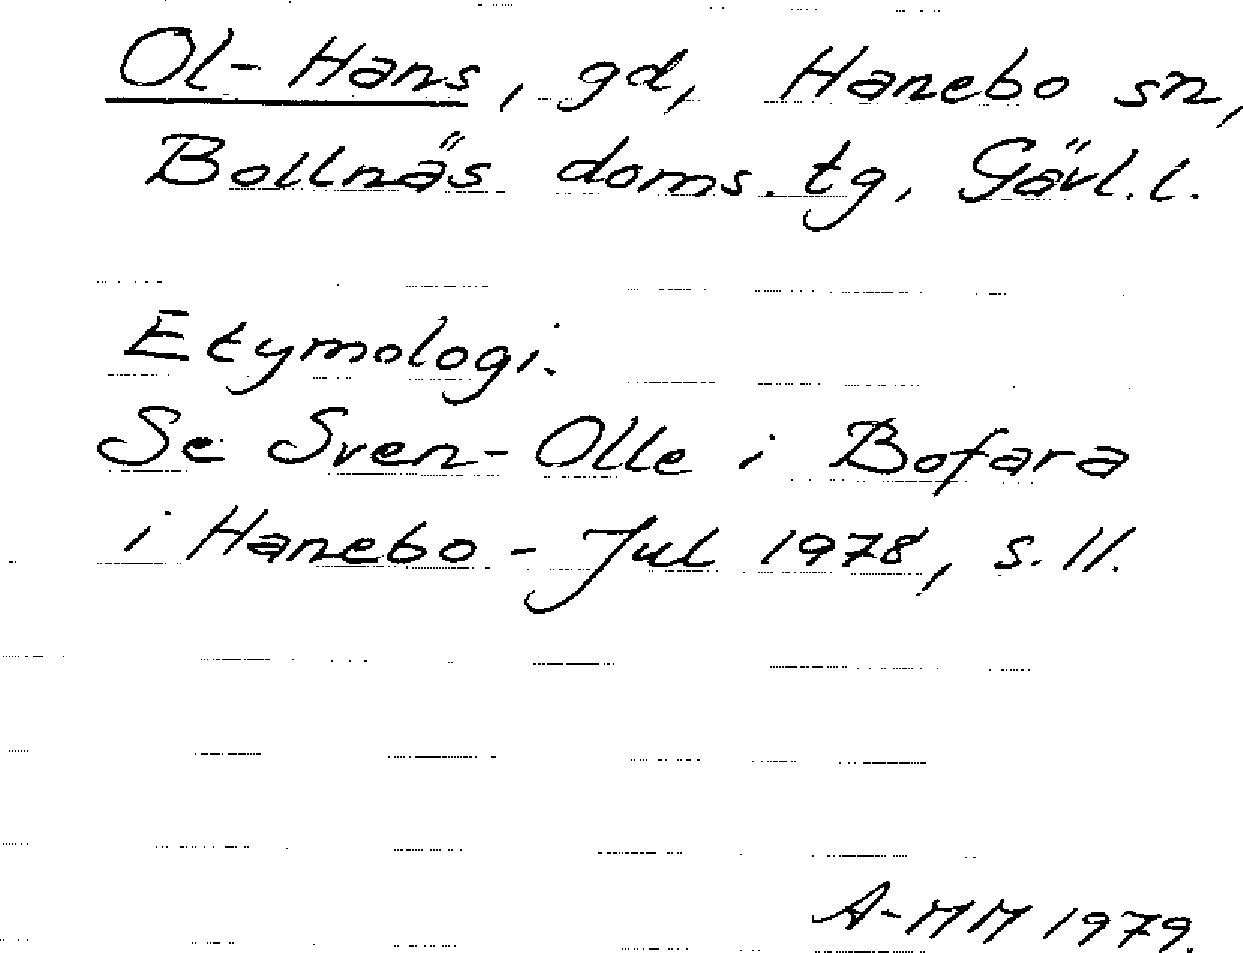 Ol-Hans, gd, Hanebo sn,
Bollnäs doms. tg, Gävl. l.
Etymologi.
Se Sven-Olle i Bofara
i Hanebo - Jul 1978, s. 11.
A-MM 1979.